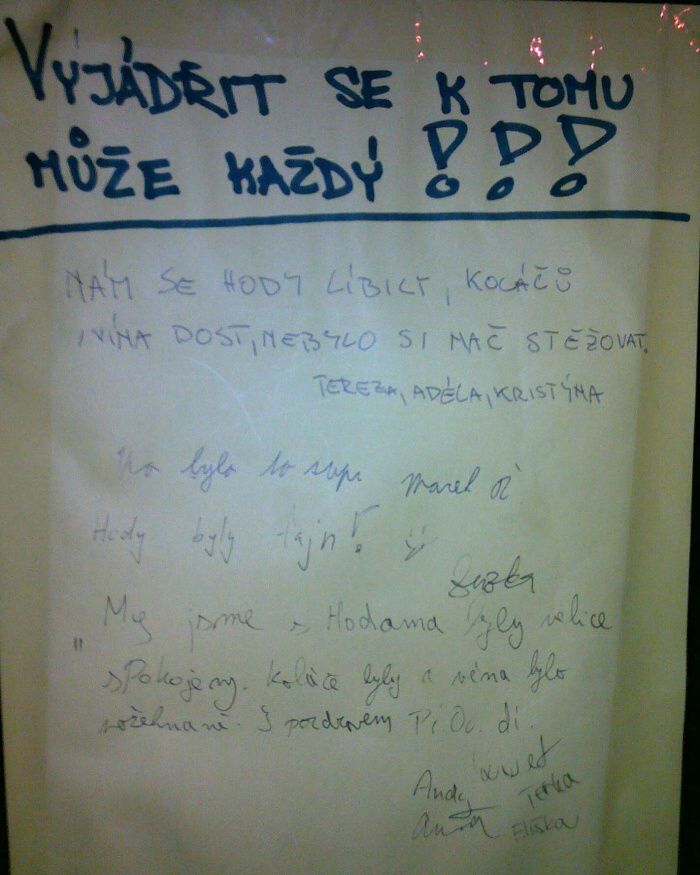 VYJÁDŘIT SE K TOMU
MŮŽE KAŽDÝ!!!
NÁM SE HODY LÍBILY, KOLÁČŮ
, VÍNA DOST, NEBYLO SI NAČ STĚŽOVAT.
TEREZA, ADÉLA, KRISTÝNA
bylo to supr Marek
Hody byly fajn!
Zuzka
" My jsme s Hodama byly velice
sPokojeny. Koláče byly a véna bylo
požehnaně. S pozdravem Pi. Ou. di.
Andy
Terka
Eliška